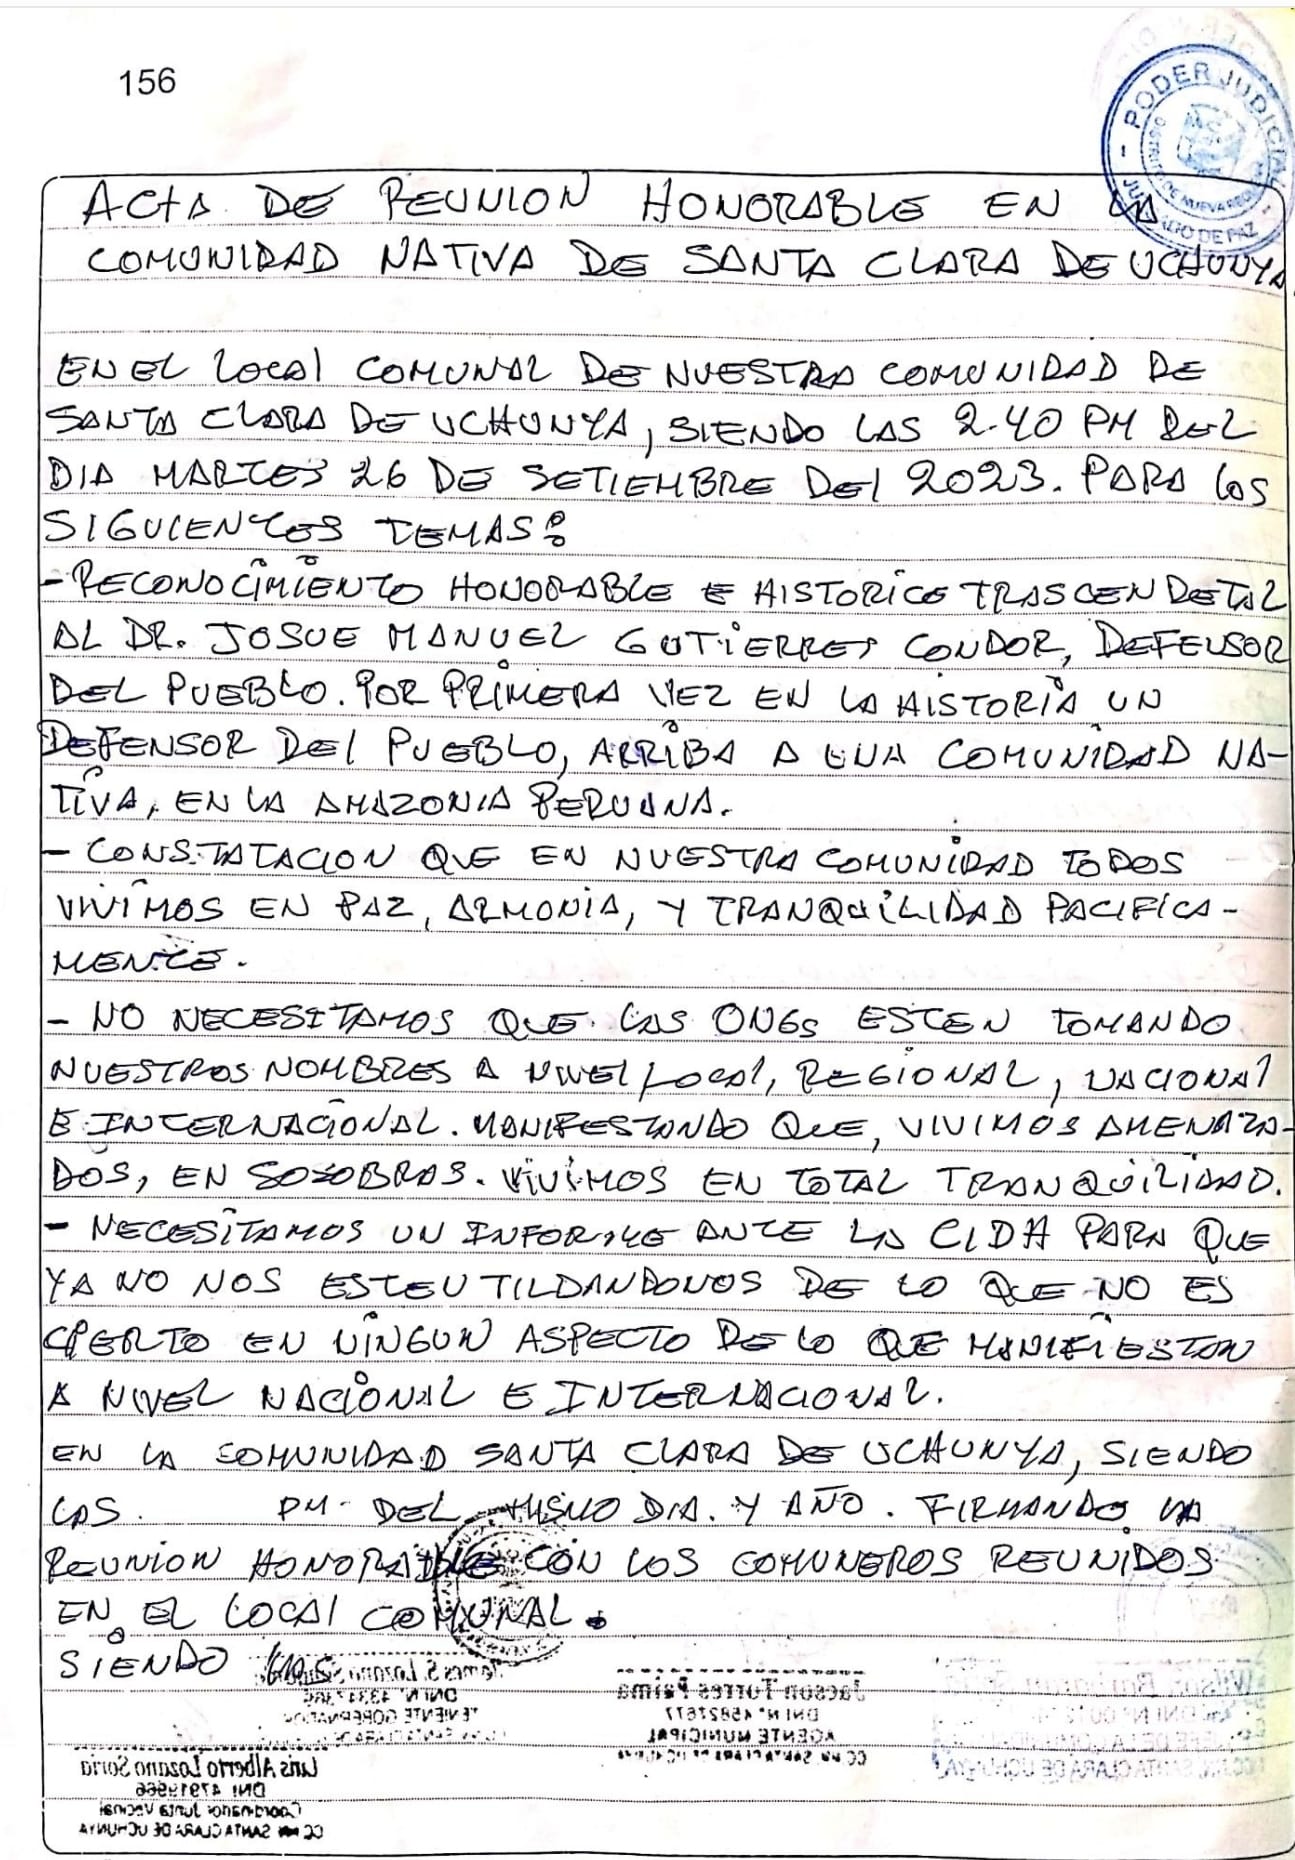 156
PODER JUDICIAL
JUZGADO DE PAZ
ACTA DE REUNION HONORABLE EN LA
COMUNIDAD NATIVA DE SANTA CLARA DE UCHUNYA
EN EL LOCAL COMUNAL DE NUESTRA COMUNIDAD DE
SANTA CLARA DE UCHUNYA, SIENDO LAS 2.40 PM DEL
DIA MARTES 26 DE SETIEMBRE DEL 2023. PARA LOS
SIGUIENTES TEMAS:
- RECONOCIMIENTO HONORABLE E HISTORICO TRASCENDETAL
AL DR. JOSUE MANUEL GUTIERRES CONDOR, DEFENSOR
DEL PUEBLO. POR PRIMERA VEZ EN LA HISTORIA UN
DEFENSOR DEL PUEBLO, ARRIBA A UNA COMUNIDAD NA-
TIVA, EN LA AMAZONIA PERUANA.
- CONSTATACION QUE EN NUESTRA COMUNIDAD TODOS
VIVIMOS EN PAZ, ARMONIA, Y TRANQUILIDAD PACIFICA-
MENTE.
- NO NECESITAMOS QUE LAS ONGs ESTEN TOMANDO
NUESTROS NOMBRES A NIVEL LOCAL, REGIONAL, NACIONAL
E INTERNACIONAL. MANIFESTANDO QUE, VIVIMOS AMENAZA-
DOS, EN SOSOBRAS. VIVIMOS EN TOTAL TRANQUILIDAD.
- NECESITAMOS UN INFORME ANTE LA CIDH PARA QUE
YA NO NOS ESTEN TILDANDONOS DE LO QUE NO ES
CIERTO EN NINGUN ASPECTO DE LO QUE MANIFIESTAN
A NIVEL NACIONAL E INTERNACIONAL.
EN LA COMUNIDAD SANTA CLARA DE UCHUNYA, SIENDO
LAS. PM. DEL MISMO DIA. Y AÑO. FIRMANDO LA
REUNION HONORABLE CON LOS COMUNEROS REUNIDOS
EN EL LOCAL COMUNAL.
SIENDO
James S. Lozano
TENIENTE GOBERNADOR
Jacson Torres Paima
DNI N° 45827677
AGENTE MUNICIPAL
CC NN SANTA CLARA DE UCHUNYA
Wilson
JEFE DE LA COMUNIDAD
SANTA CLARA DE UCHUNYA
Luis Alberto Lozano Soria
DNI 47919666
Coordinador Junta Vecinal
CC NN SANTA CLARA DE UCHUNYA